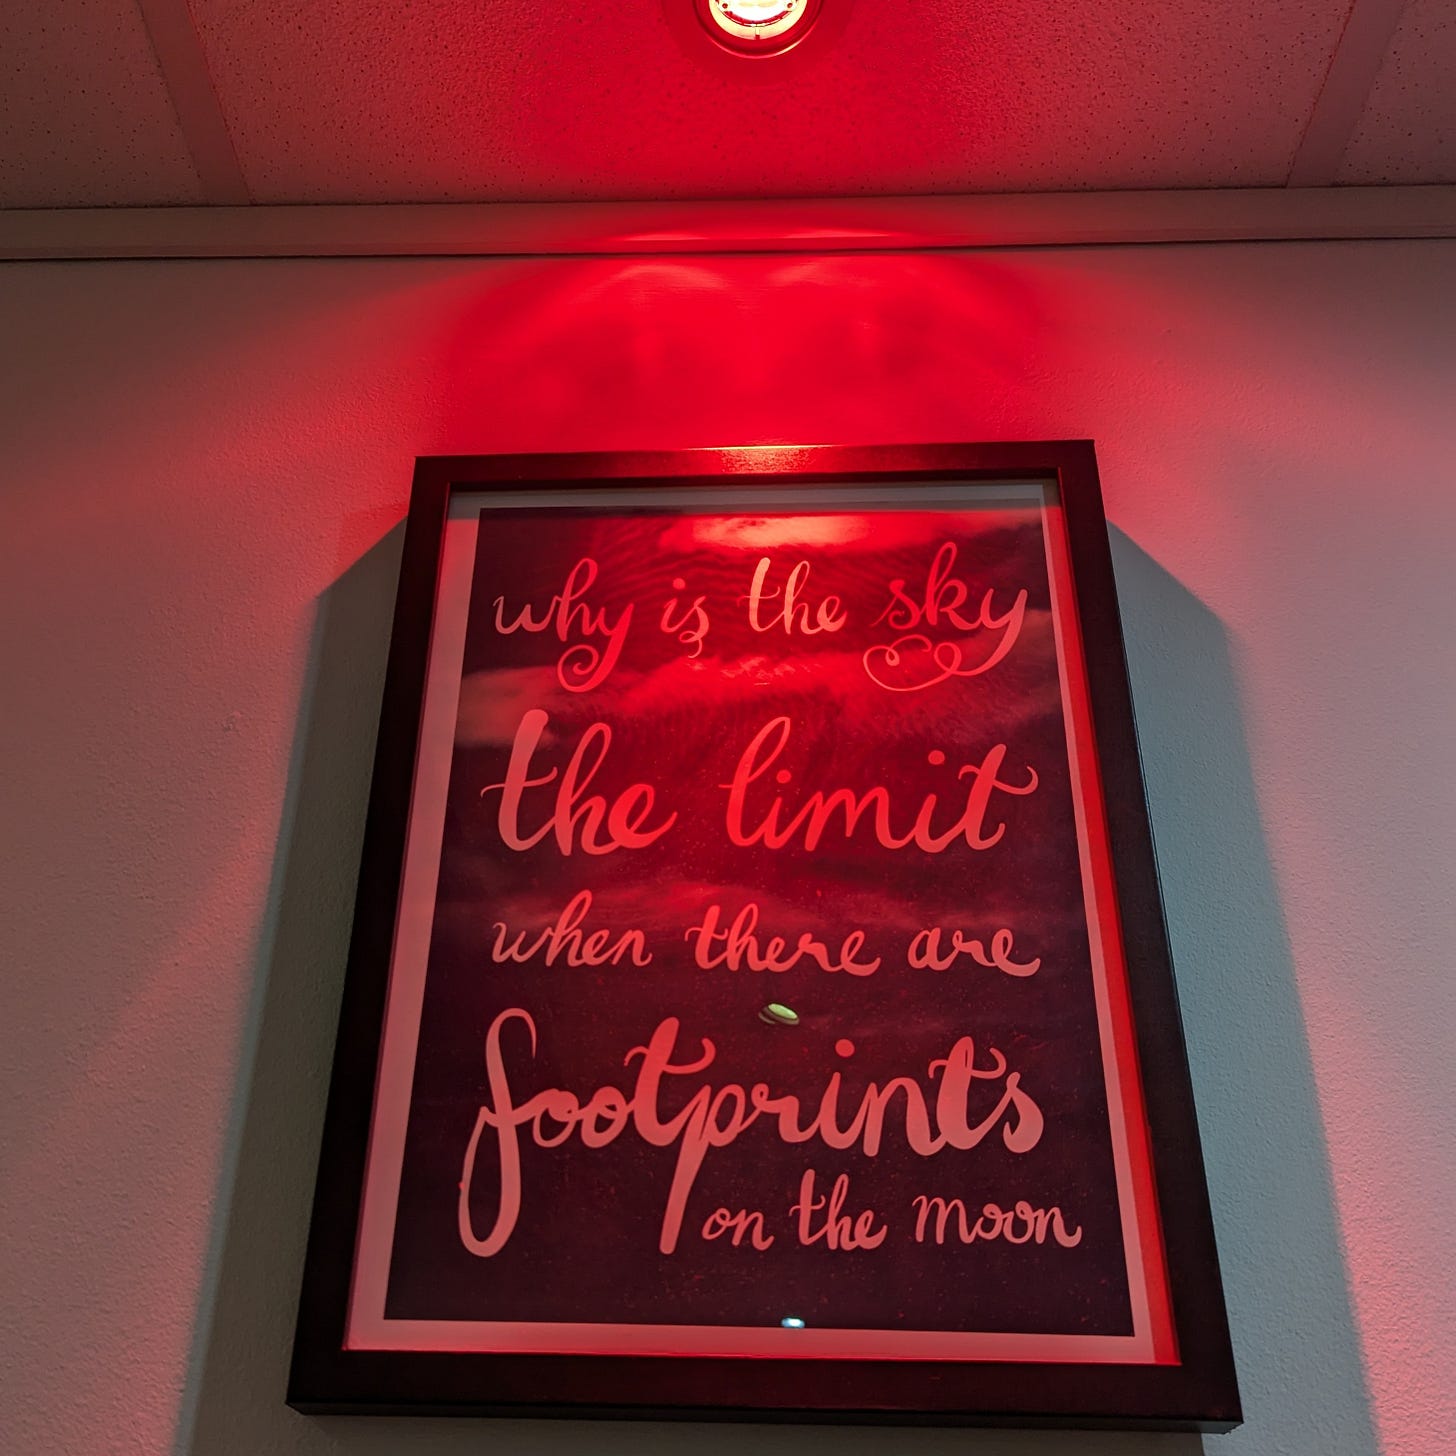 why is the sky
the limit
when there are
footprints
on the moon